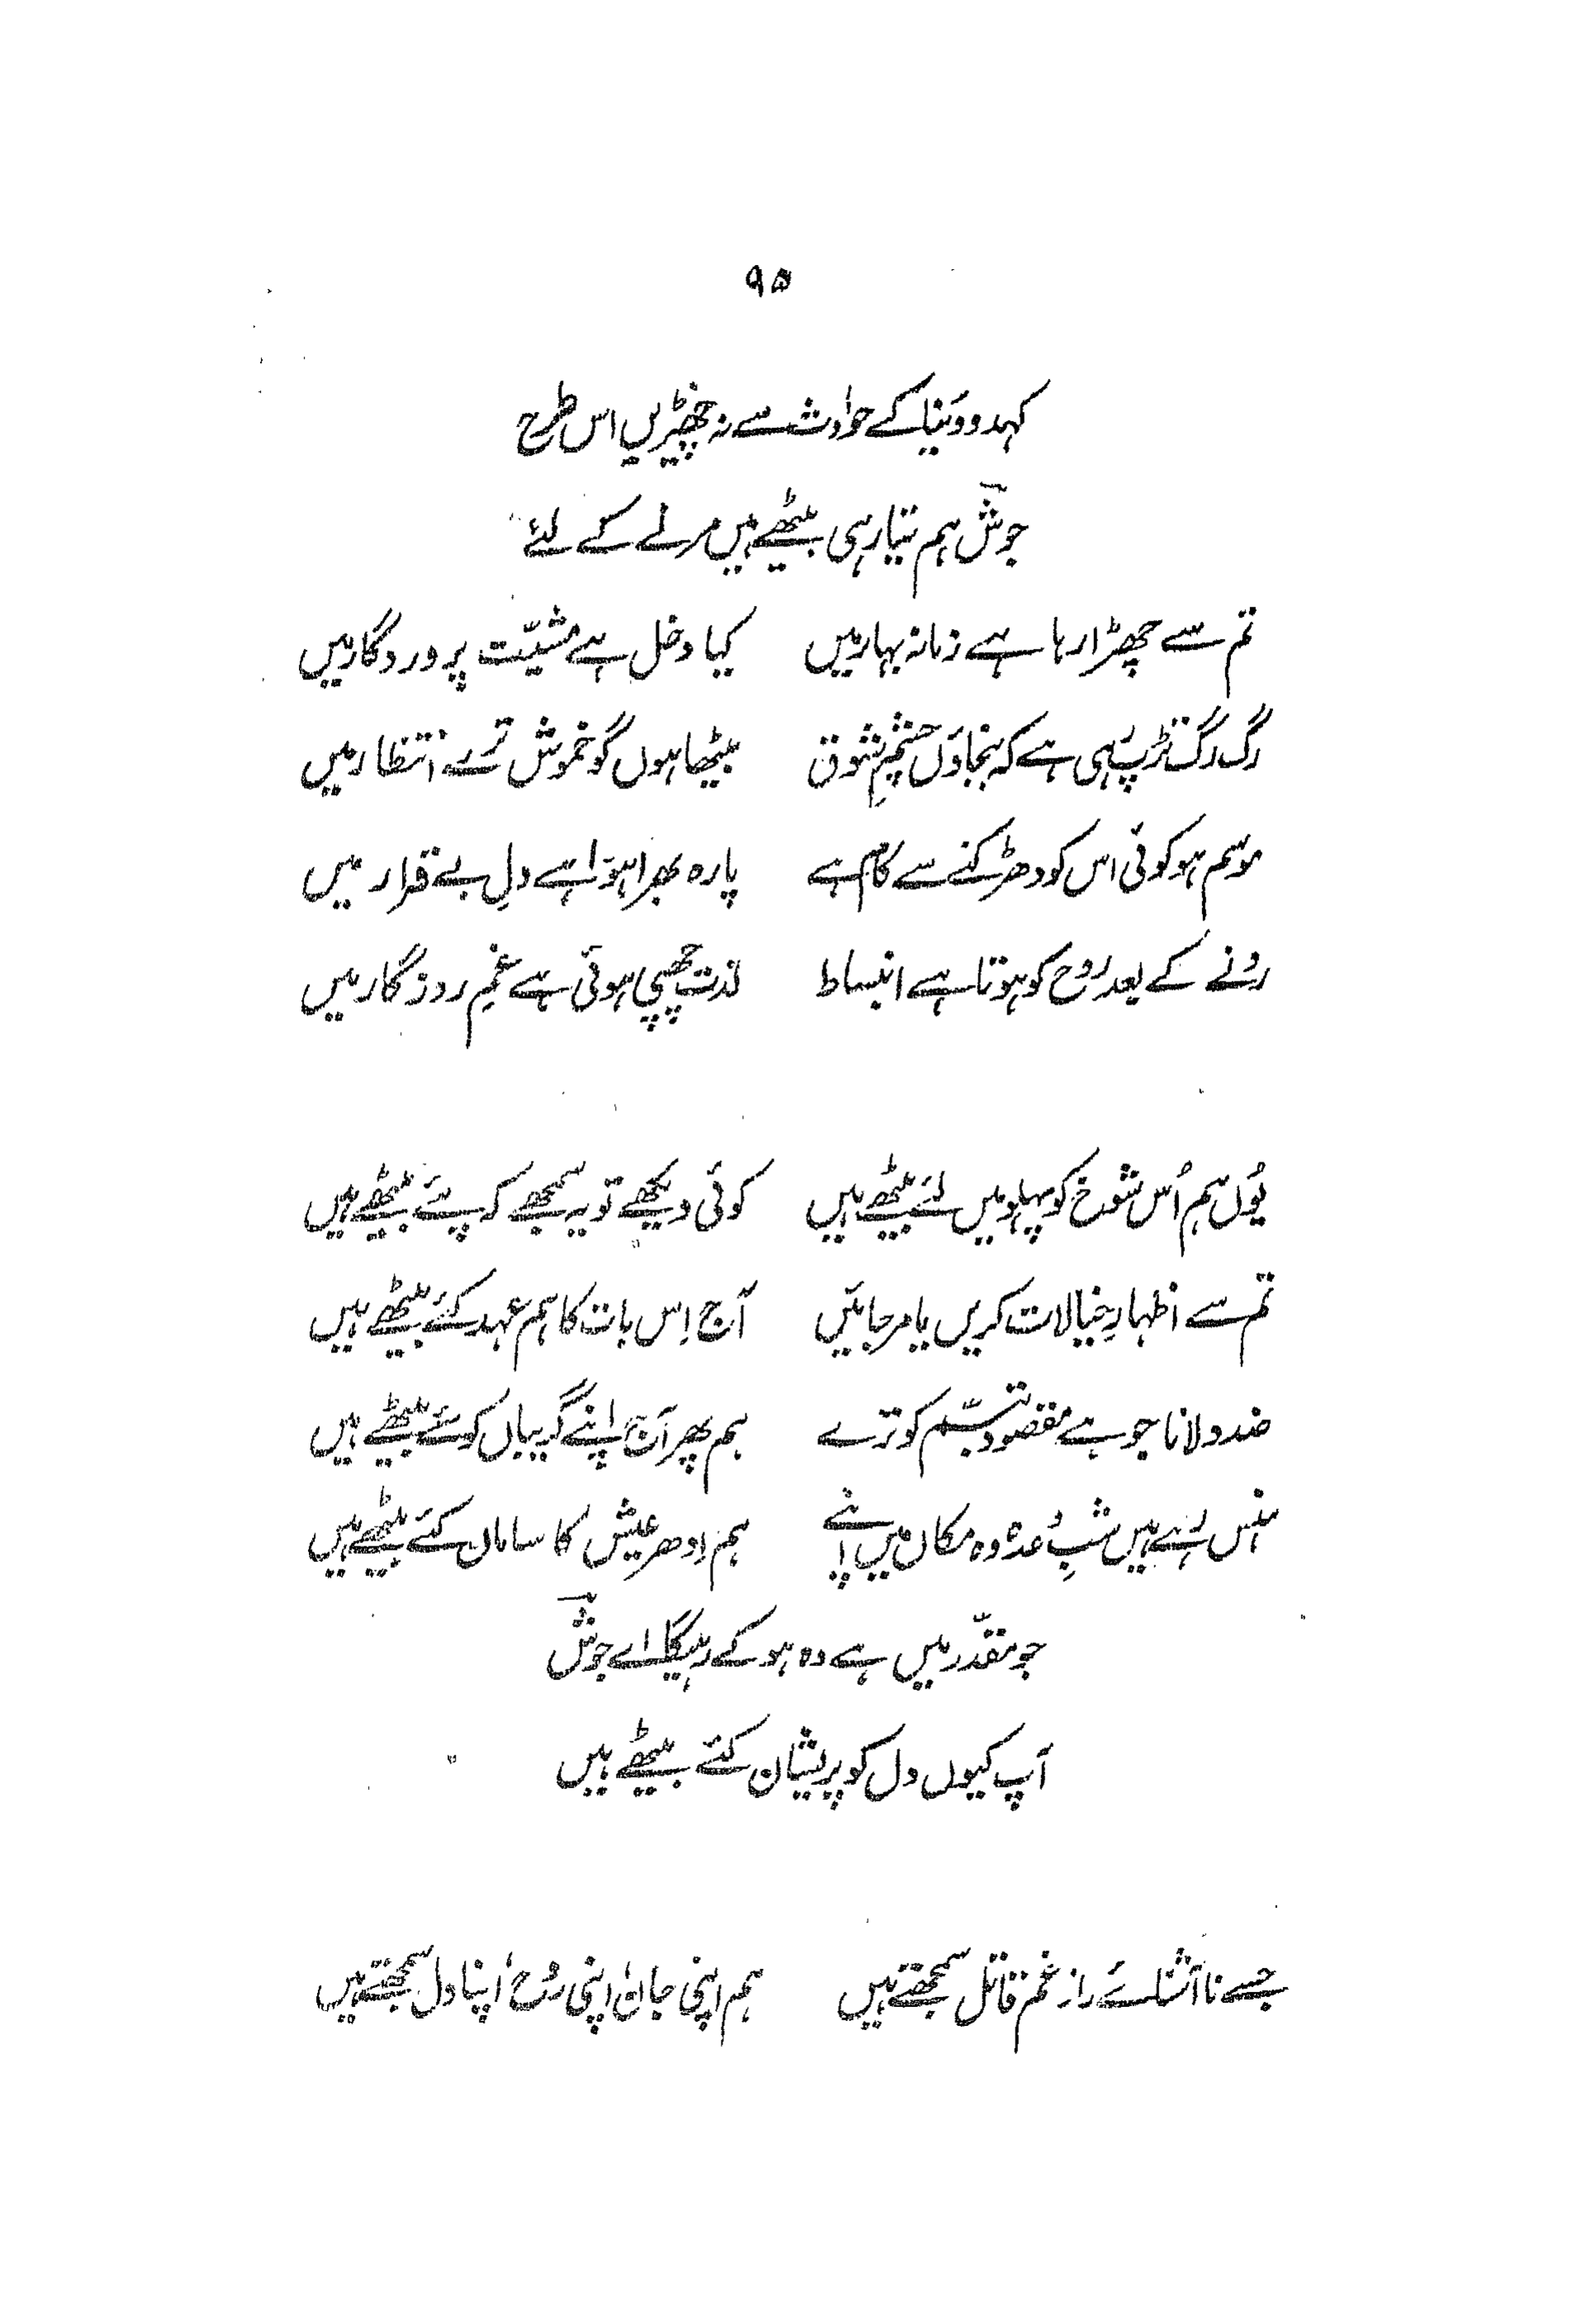 ۹۵
کہدو دنیا کے حوادث سے نہ چھیڑیں اس طرح
جوش ہم تیار ہی بیٹھے ہیں مرنے کے لئے
تم سے چھڑا رہا ہے زمانہ بہار میں کیا دخل ہے مشیّت پروردگار میں
رگ رگ تڑپ رہی ہے کہ بنجاؤں چشمِ شوق بیٹھا ہوں گو خموش ترے انتظار میں
موسم ہو کوئی اس کو دھڑکنے سے کام ہے پارہ بھرا ہوا ہے دلِ بے قرار میں
رونے کے بعد روح کو ہوتا ہے انبساط لذت چھپی ہوئی ہے غمِ روزگار میں
یُوں ہم اُس شوخ کو پہلو میں لئے بیٹھے ہیں کوئی دیکھے تو یہ سمجھے کہ پئے بیٹھے ہیں
تم سے اظہارِ خیالات کریں یا مر جائیں آج اِس بات کا ہم عہد کئے بیٹھے ہیں
ضد دلانا جو ہے مقصود تبسّم کو ترے ہم پھر آج اپنے گریباں کو سئے بیٹھے ہیں
ہنس رہے ہیں شبِ وعدہ وہ مکاں میں اپنے ہم اِدھر عیش کا ساماں کئے بیٹھے ہیں
جو مقدّر میں ہے وہ ہو کے رہیگا اے جوش
آپ کیوں دل کو پریشان کئے بیٹھے ہیں
جسے نا آشنائے راز غم قاتل سمجھتے ہیں ہم اپنی جان، اپنی رُوح، اپنا دل سمجھتے ہیں